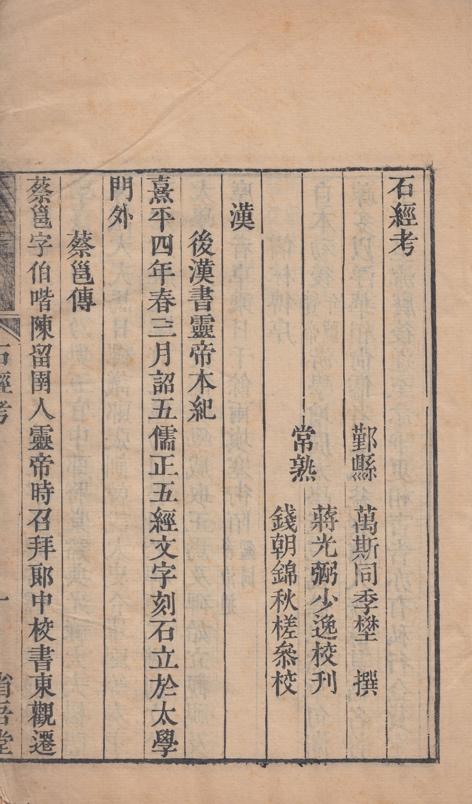 石經考
鄞縣 萬斯同季壄 撰
蔣光弼少逸校刊
常熟
錢朝錦秋槎叅校
漢
後漢書靈帝本紀
熹平四年春三月詔五儒正五經文字刻石立於太學
門外
蔡邕傳
蔡邕字伯喈陳留圉人靈帝時召拜郎中校書東觀遷
石經考
一
省吾堂